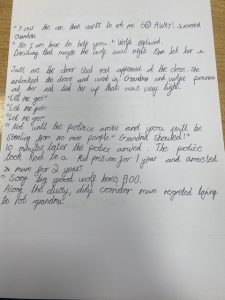 " Your the one that want's to rob me. GO AWAY! Screamed
Grandma.
" No I am here to help you." Wolfie explained.
Deciding that maybe the wolf was right. She let her in.
Just as the door Red appeared at the door. She
unlocked the door and went in. Grandma and wolfie pounced
at her and tied her up that was very tight.
"Let me go!"
"Let me go!"
"Let me go!"
" Not until the police arrive and you will be
stealing from no more people." Grandma shouted!"
10 minutes later the police arrived. The police
took Red to a kid prison for 1 year and arrested
mum for 2 years.
" Sorry big good wolf here's £100.
Along the dusty, dirty corridor mum regreted trying
to rob grandma.